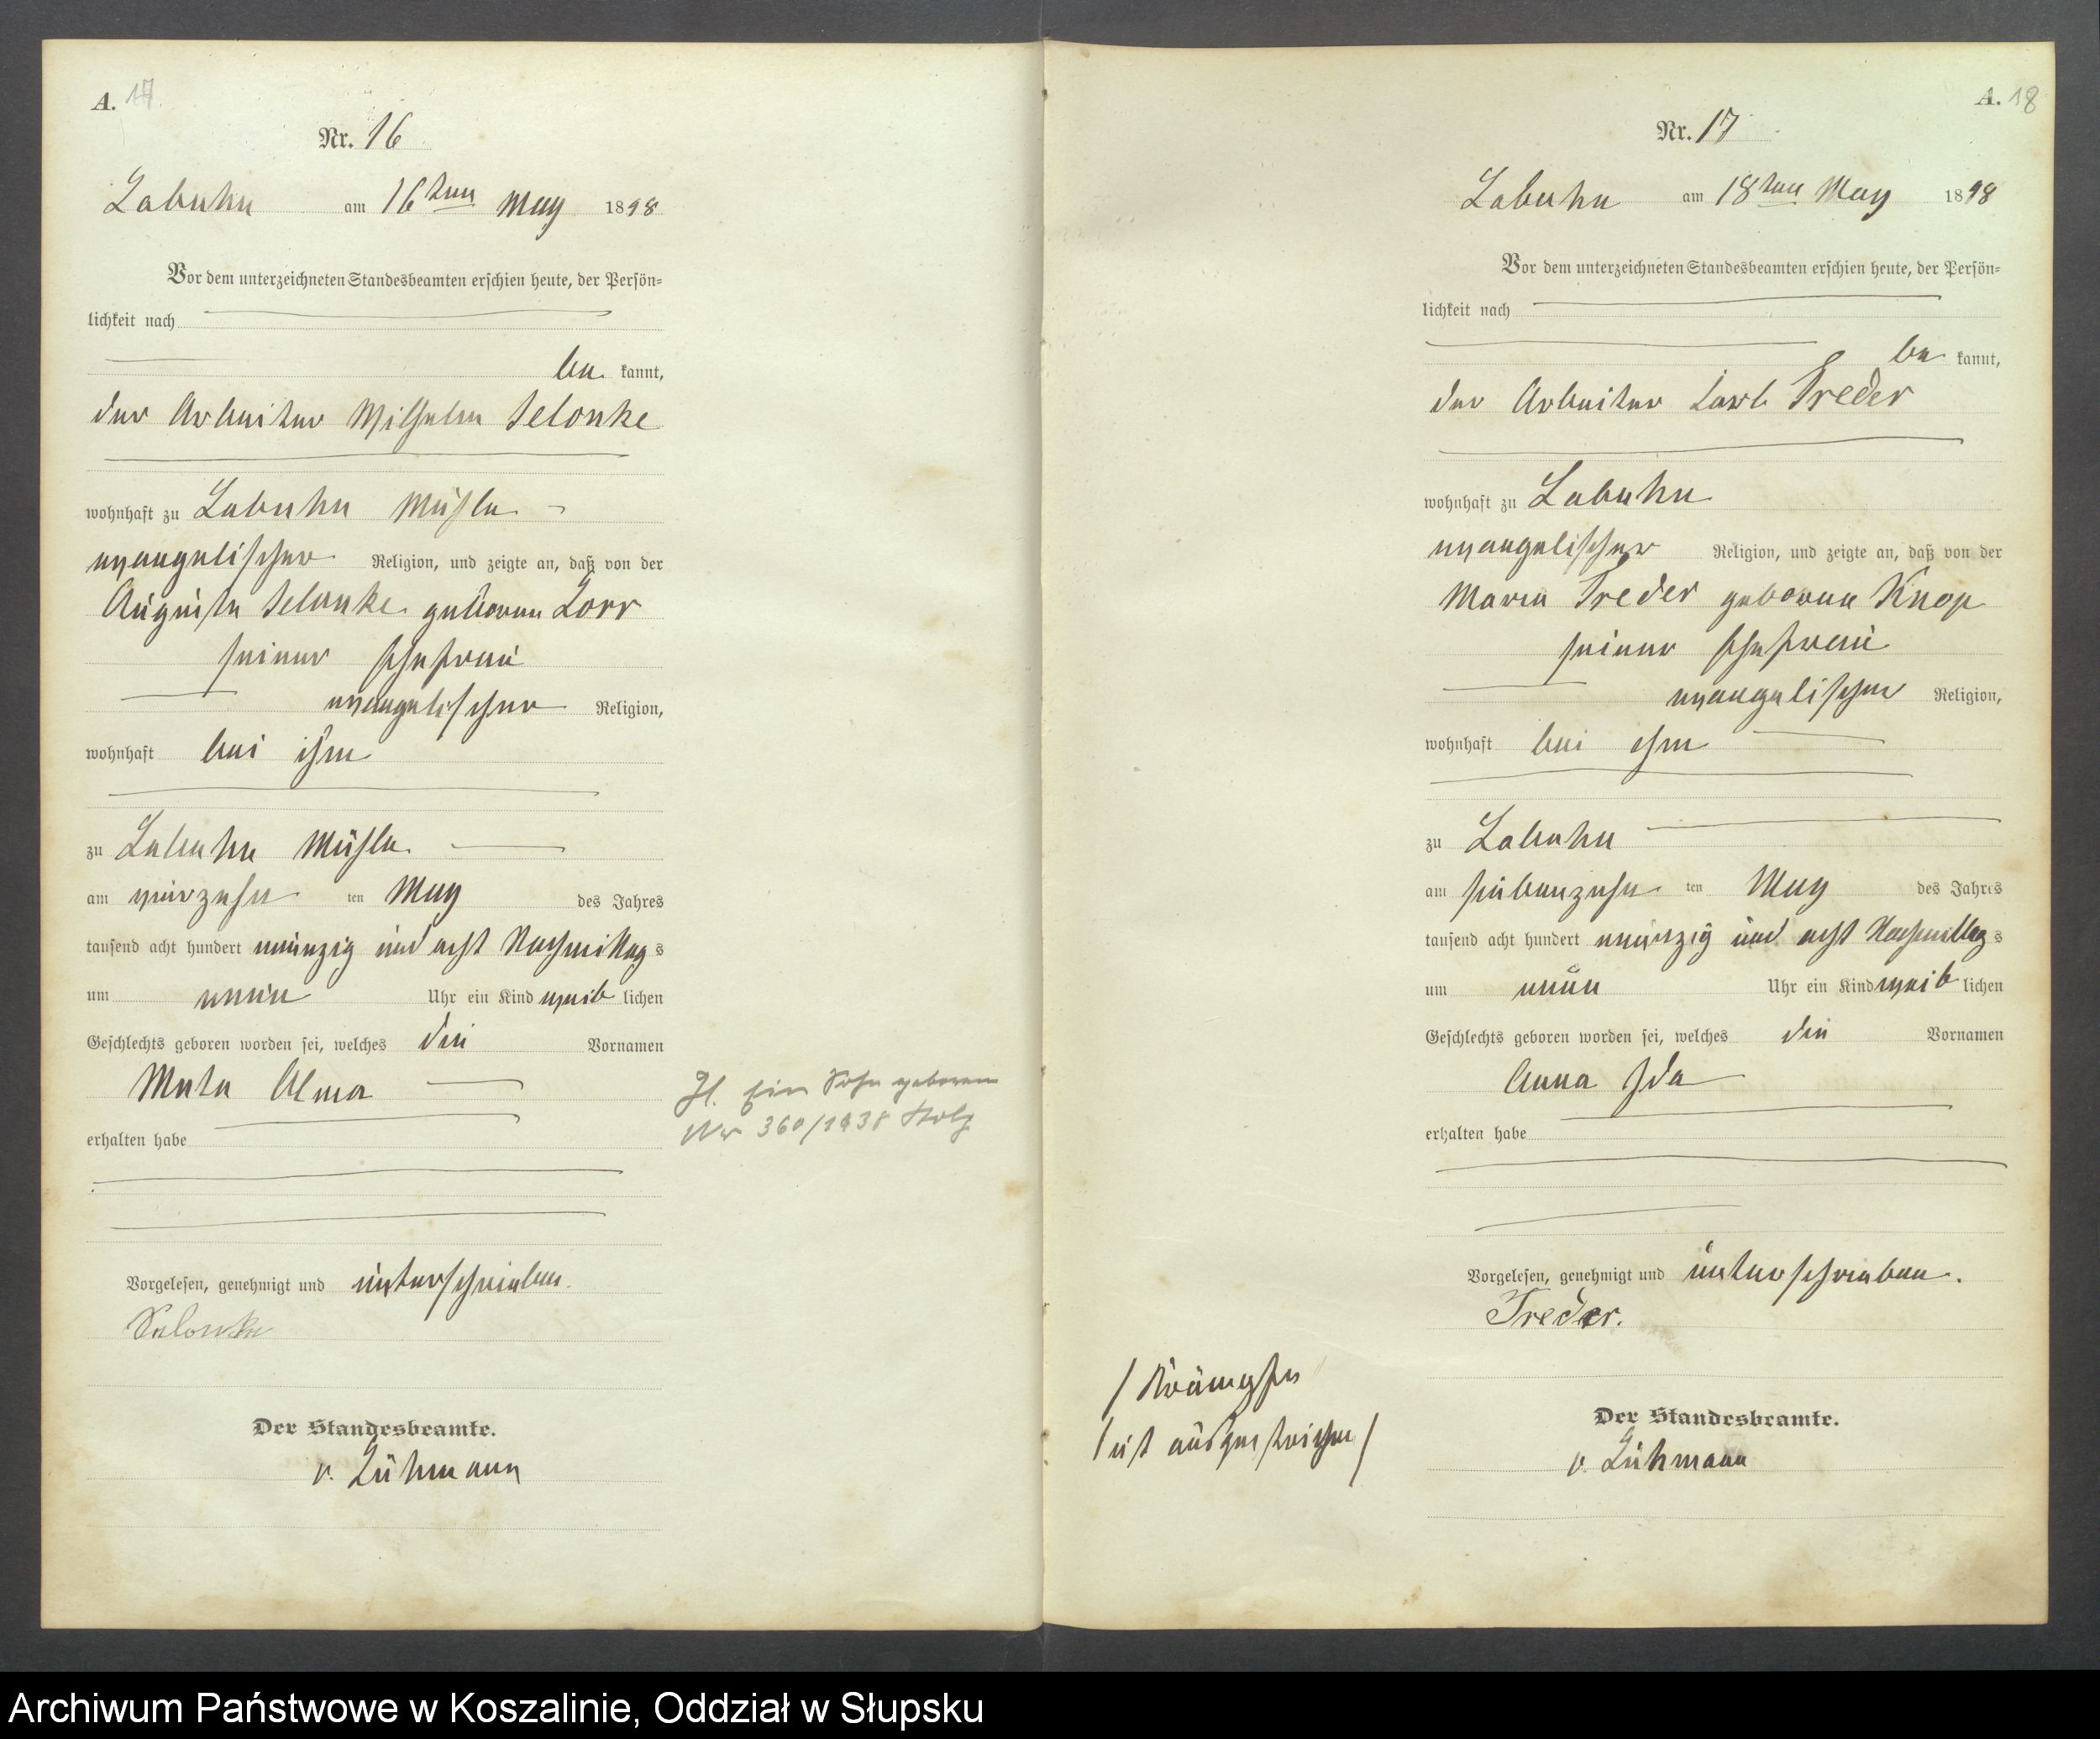 A. 17.
Nr. 16
Labuhn am 16ten May 1898
Vor dem unterzeichneten Standesbeamten erschien heute, der Persön-
lichkeit nach
be kannt,
der Arbeiter Wilhelm Selonke
wohnhaft zu Labuhn Mühle
evangelischer Religion, und zeigte an, daß von der
Auguste Selonke geboren Lorr
seiner Ehefrau
evangelischer Religion,
wohnhaft bei ihm
zu Labuhn Mühle
am vierzehn ten May des Jahres
tausend acht hundert neunzig und acht Nachmittag s
um neun Uhr ein Kind weib lichen
Geschlechts geboren worden sei, welches die Vornamen
Meta Alma
erhalten habe
Vorgelesen, genehmigt und unterschrieben.
Selonke
Der Standesbeamte.
v. Lühmann
Sohn geboren
Nr 360/1938 Stolp
A. 18
Nr. 17
Labuhn am 18ten May 1898
Vor dem unterzeichneten Standesbeamten erschien heute, der Persön-
lichkeit nach
be kannt,
der Arbeiter Carl Treder
wohnhaft zu Labuhn
evangelischer Religion, und zeigte an, daß von der
Maria Treder geborene Knop
seiner Ehefrau
evangelischer Religion,
wohnhaft bei ihm
zu Labuhn
am siebenzehn ten May des Jahres
tausend acht hundert neunzig und acht Nachmittag s
um neun Uhr ein Kind weib lichen
Geschlechts geboren worden sei, welches die Vornamen
Anna Ida
erhalten habe
Vorgelesen, genehmigt und unterschrieben.
Treder.
Der Standesbeamte.
v. Lühmann
/ Krämpfe
/ ist ausgestrichen /
Archiwum Państwowe w Koszalinie, Oddział w Słupsku